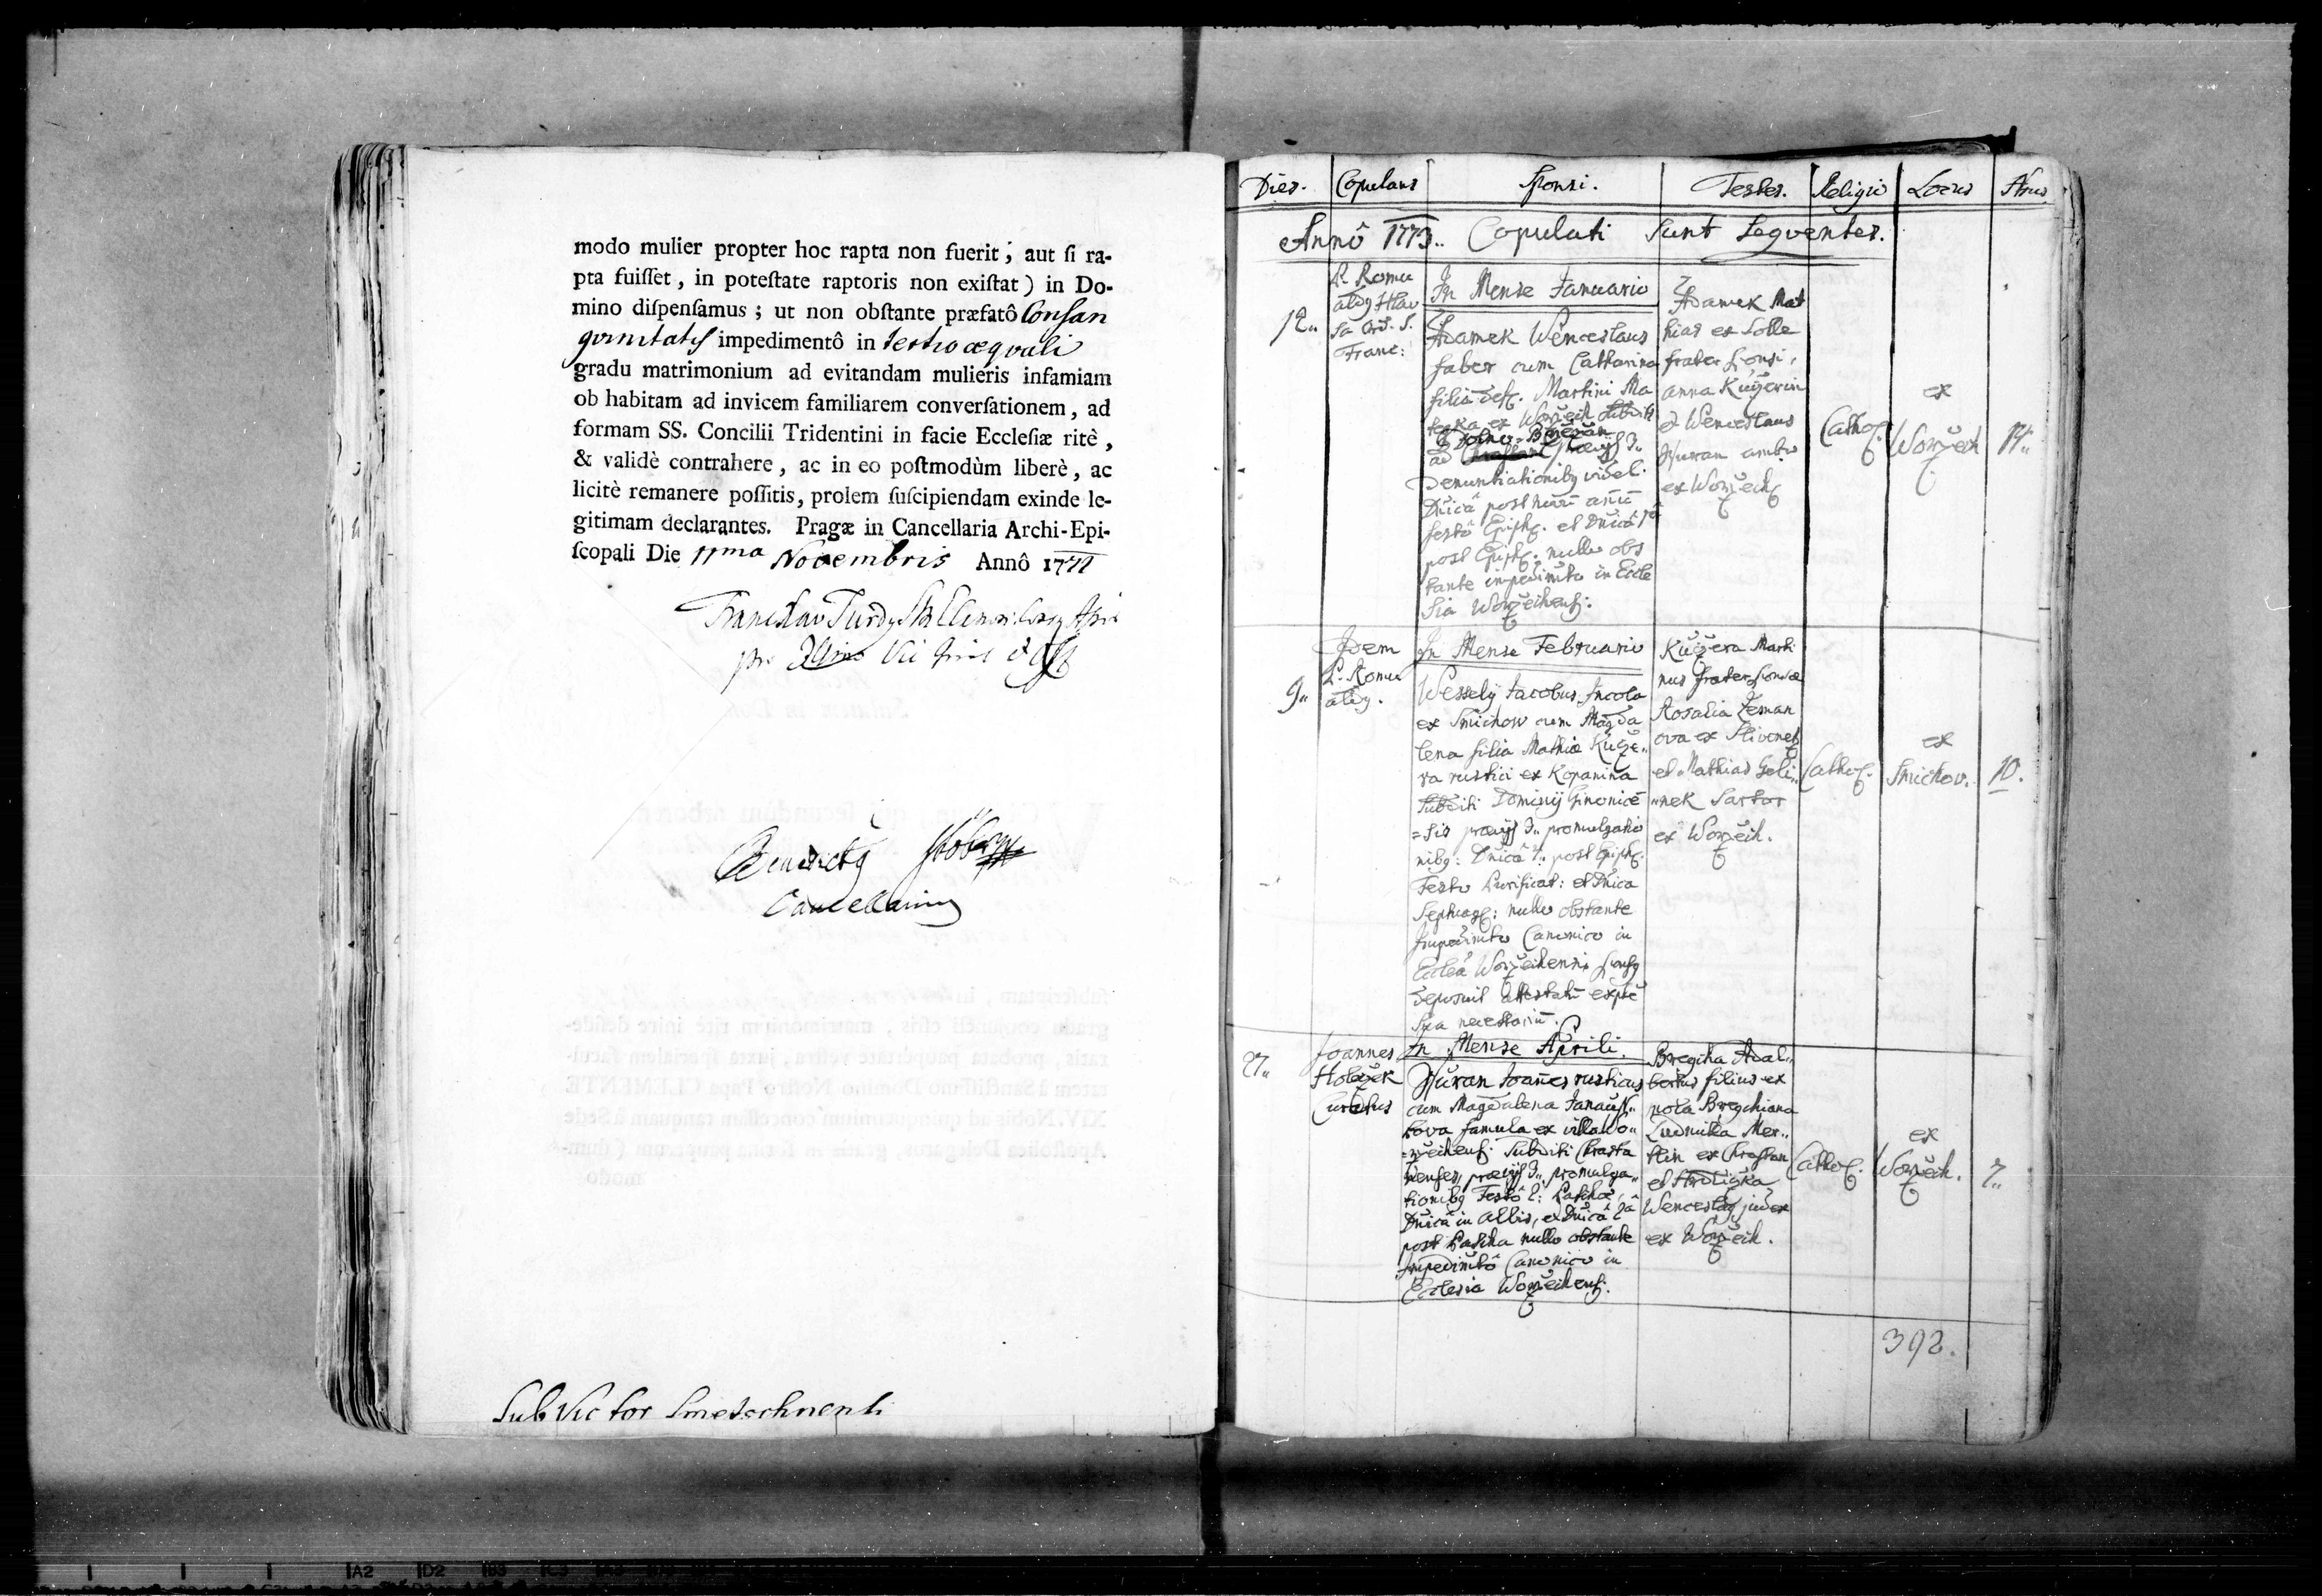 modo mulier propter hoc rapta non fuerit; aut ſi ra-
pta fuiſſet, in poteſtate raptoris non exiſtat) in Do-
mino diſpenſamus; ut non obſtante præfatô Conſan
gvinitatis impedimentô in tertio æqvali
gradu matrimonium ad evitandam mulieris infamiam
ob habitam ad invicem familiarem converſationem, ad
formam SS. Concilii Tridentini in facie Eccleſiæ ritè,
& validè contrahere, ac in eo poſtmodùm liberè, ac
licitè remanere poſſitis, prolem ſuſcipiendam exinde le-
gitimam declarantes. Pragæ in Cancellaria Archi-Epi-
ſcopali Die 11ma Novembris Annô 1771
Cancellarius
Dies. Copulans Sponsi. Testes. Religio Locus Anus
Annô 1773.. Copulati Sunt Seqventes.
12..
P. Romu
aldg Hlav
sa Ord. S.
Franc:
In Mense Januario
Adamek Wenceslaus
faber cum Catharina
filia def. Martini Ma
teyka ex Worzech subditi
Denuntiationibg videl.
post Epiph. nullo obs
tante impedimto in Eccle
sia Worzechensi.
Adamek Mat
hias ex Solle
frater sponsi,
anna Kuczerin
et Wenceslaus
Huran ambo
ex Worzech
Cathol.
ex
Worzech
14..
9..
Idem
P. Romu
aldg.
In Mense Februario
Wesselÿ Jacobus Incola
ex Smichow cum Magda
lena filia Mathiæ Kucze..
ra rustici ex Kopanina
Subditi Dominÿ Ginonice
=sis præviis 3.. promulgatio
nibg: Dnica 3.. post Epiph.
Festo Purificat: et Dnica
Septuag: nullo obstante
Impedimto Canonico in
Ecclea Worzechensi, sponsg
deposuit Attestatu
necessariu.
Kuczera Marti
nus frater sponsæ
Rosalia Zeman
ova ex Slivenetz
et Mathias Goli..
..nek Sartor
ex Worzech.
Cathol.
ex
Smichov.
10.
27..
Joannes
Holeczek
Curatus
In Mense Aprili.
Huran Joannes rusticus
cum Magdalena
tova famula ex villa Wo..
=rzechensi. Subditi Chrasta
nenses, præviis 3.. promulga..
tionibg Festô 2: Paschæ,
Dnicâ in Albis, et Dnicâ 2â
post Pascha nullo obstante
Impedimtô Canonico in
Ecclesia Worzechensi.
Bregcha Adal..
bertus filius ex
Ludmilla Mer..
tlin ex Chrastan
et Hrdliczka
Wenceslag judex
ex Worzech.
Cathol.
ex
Worzech.
7..
392.